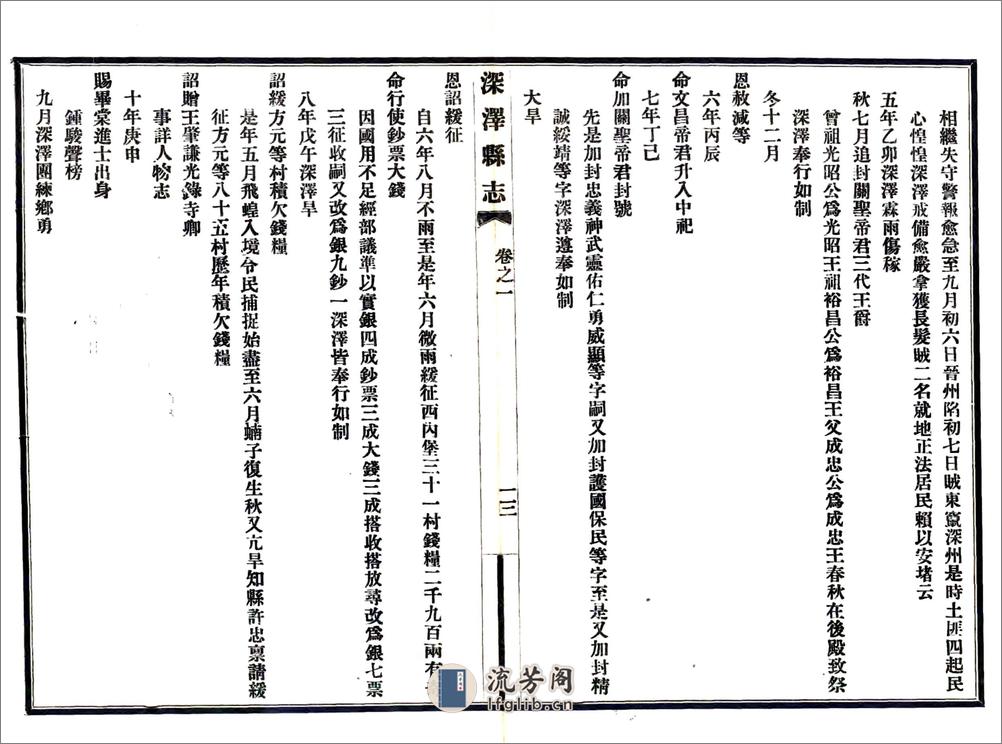 相繼失守警報愈急至九月初六日晉州陷初七日賊東竄深州是時土匪四起民
心惶惶深澤戒備愈嚴拿獲長髮賊二名就地正法居民賴以安堵云
五年乙卯深澤霖雨傷稼
秋七月追封關聖帝君三代王爵
曾祖光昭公爲光昭王祖裕昌公爲裕昌王父成忠公爲成忠王春秋在後殿致祭
深澤奉行如制
冬十二月
恩赦減等
六年丙辰
命文昌帝君升入中祀
七年丁己
命加關聖帝君封號
先是加封忠義神武靈佑仁勇威顯等字嗣又加封護國保民等字至是又加封精
誠綏靖等字深澤遵奉如制
大旱
深澤縣志
卷之一
一三
恩詔緩征
自六年八月不雨至是年六月微雨緩征西內堡三十一村錢糧二千九百兩有
命行使鈔票大錢
因國用不足經部議準以實銀四成鈔票三成大錢三成搭收搭放尋改爲銀七票
三征收嗣又改爲銀九鈔一深澤皆奉行如制
八年戊午深澤旱
詔緩方元等村積欠錢糧
是年五月飛蝗入境令民捕捉始盡至六月蝻子復生秋又亢旱知縣許忠稟請緩
征方元等八十五村歷年積欠錢糧
詔贈王肇謙光祿寺卿
事詳人物志
十年庚申
賜畢棠進士出身
鍾駿聲榜
九月深澤團練鄉勇
流芳阁
lfglib.cn